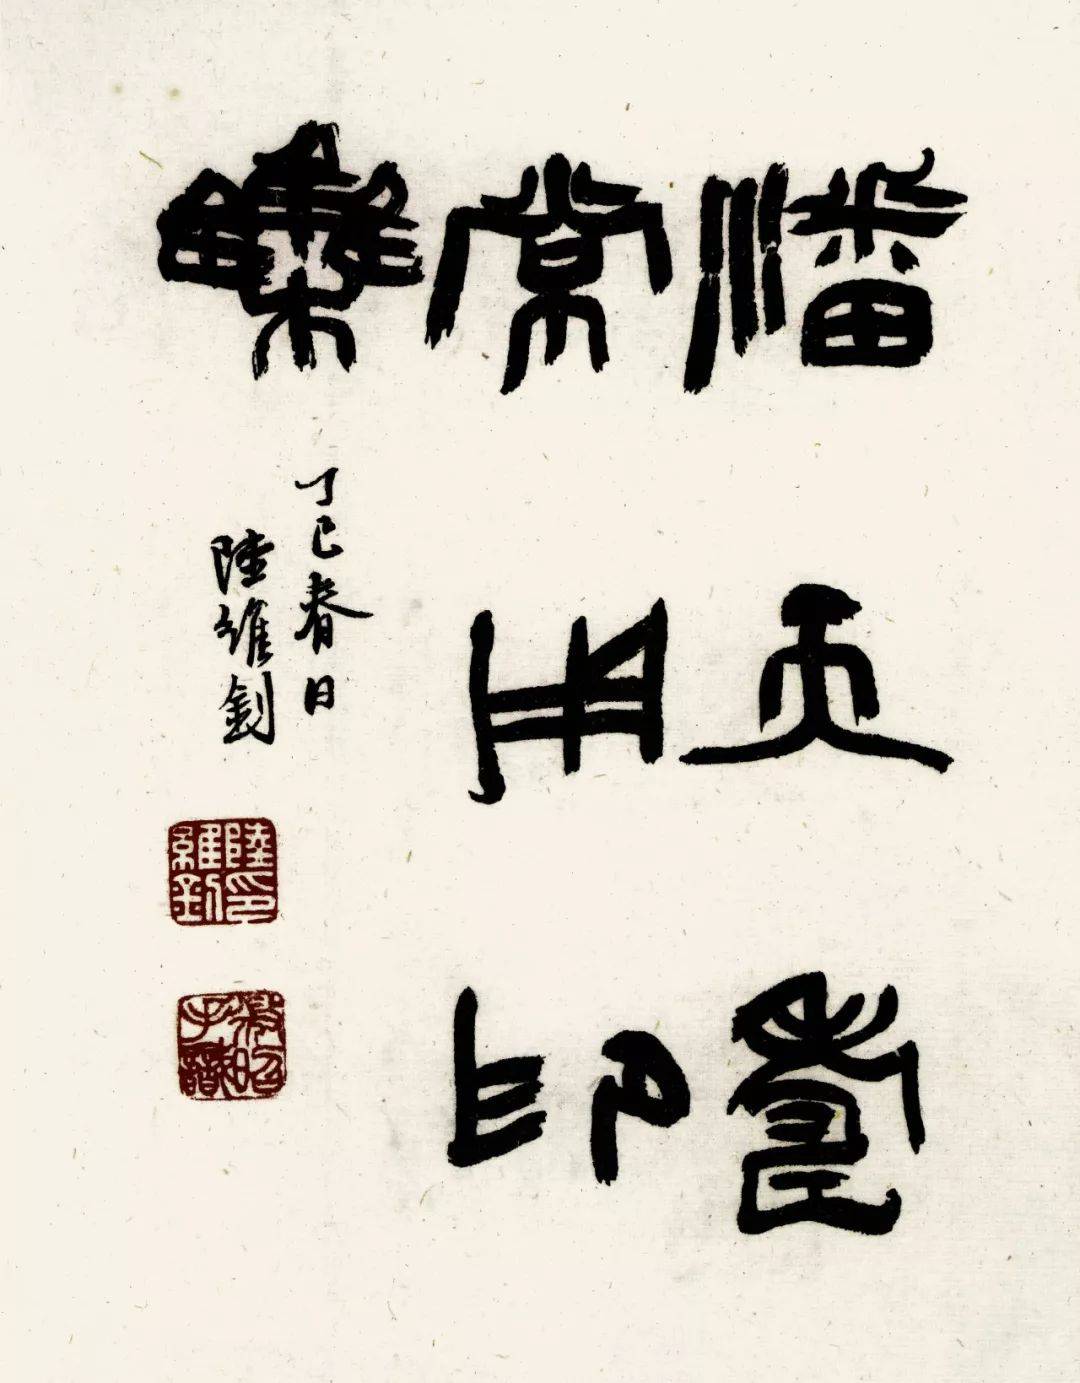 潘天壽
常用印
雧
丁巳春日
陸維釗
陸維釗印